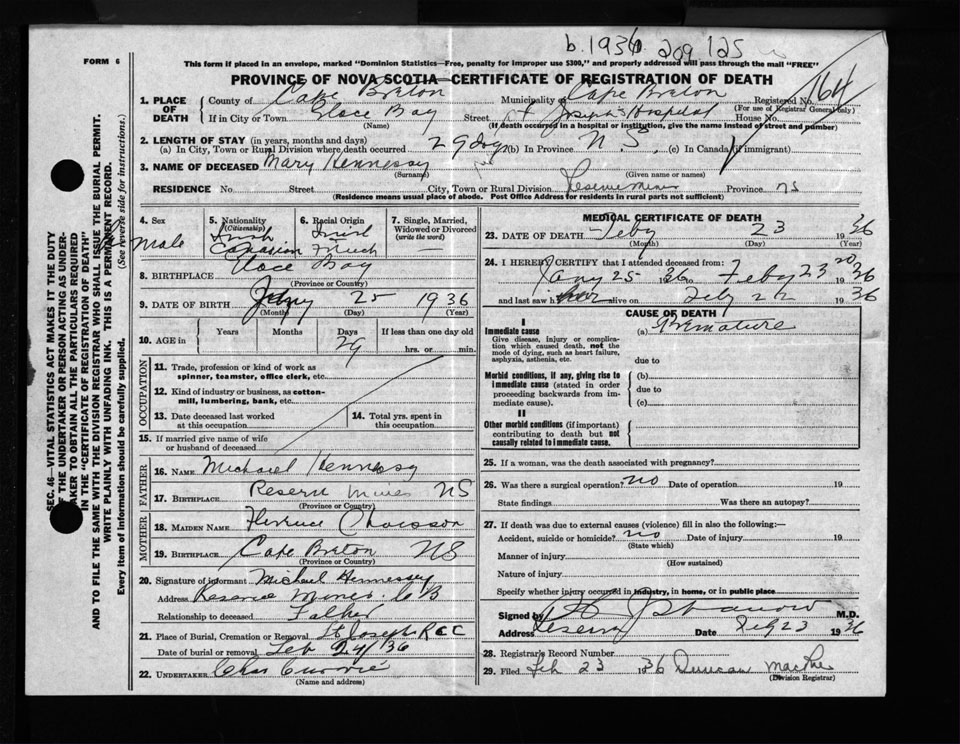 b. 1936 209 125
FORM 6
This form if placed in an envelope, marked "Dominion Statistics—Free, penalty for improper use $300," and properly addressed will pass through the mail "FREE"
PROVINCE OF NOVA SCOTIA—CERTIFICATE OF REGISTRATION OF DEATH
164
1. PLACE OF DEATH County of Cape Breton Municipality of Cape Breton Registered No.
(For use of Registrar General only)
If in City or Town Glace Bay Street St Joseph's Hospital House No.
(Name) (If death occurred in a hospital or institution, give the name instead of street and number)
2. LENGTH OF STAY (in years, months and days)
(a) In City, Town or Rural Division where death occurred 29 days (b) In Province N.S. (c) In Canada (if immigrant)
3. NAME OF DECEASED Mary Hennessy
(Surname) (Given name or names)
RESIDENCE No. Street City, Town or Rural Division Reserve Mines Province NS
(Residence means usual place of abode. Post Office Address for residents in rural parts not sufficient)
4. Sex 5. Nationality (Citizenship) 6. Racial Origin 7. Single, Married, Widowed or Divorced (write the word)
male Irish Irish
Canadian French
8. BIRTHPLACE Glace Bay
(Province or Country)
9. DATE OF BIRTH 25 1936
(Month) (Day) (Year)
10. AGE in Years Months Days If less than one day old
29 hrs. or min.
OCCUPATION
11. Trade, profession or kind of work as spinner, teamster, office clerk, etc.
12. Kind of industry or business, as cotton-mill, lumbering, bank, etc.
13. Date deceased last worked at this occupation
14. Total yrs. spent in this occupation
15. If married give name of wife or husband of deceased
FATHER
16. NAME Michael Hennessy
17. BIRTHPLACE Reserve Mines NS
(Province or Country)
MOTHER
18. MAIDEN NAME Florence Chaisson
19. BIRTHPLACE Cape Breton NS
(Province or Country)
20. Signature of informant Michael Hennessey
Address Reserve Mines C B
Relationship to deceased Father
21. Place of Burial, Cremation or Removal St Joseph R C C
Date of burial or removal Feb 24/36
22. UNDERTAKER Chas Currie
(Name and address)
MEDICAL CERTIFICATE OF DEATH
23. DATE OF DEATH Feby 23 1936
(Month) (Day) (Year)
24. I HEREBY CERTIFY that I attended deceased from:
Jany 25 36 to Feby 23 1936
and last saw her alive on Feby 22 1936
CAUSE OF DEATH
I
Immediate cause (a) Premature
Give disease, injury or complication which caused death, not the mode of dying, such as heart failure, asphyxia, asthenia, etc.
due to
Morbid conditions, if any, giving rise to immediate cause (stated in order proceeding backwards from immediate cause).
(b)
due to
(c)
II
Other morbid conditions (if important) contributing to death but not causally related to immediate cause.
25. If a woman, was the death associated with pregnancy?
26. Was there a surgical operation? no Date of operation 19
State findings Was there an autopsy?
27. If death was due to external causes (violence) fill in also the following:—
Accident, suicide or homicide? no Date of injury 19
(State which)
Manner of injury
(How sustained)
Nature of injury
Specify whether injury occurred in industry, in home, or in public place
Signed by M.D.
Address Reserve Date Feb 23 1936
28. Registrar's Record Number
29. Filed Feb 23 1936 Duncan
(Division Registrar)
SEC. 46—VITAL STATISTICS ACT MAKES IT THE DUTY
OF THE UNDERTAKER OR PERSON ACTING AS UNDER-
TAKER TO OBTAIN ALL THE PARTICULARS REQUIRED
IN THE "CERTIFICATE OF REGISTRATION OF DEATH"
AND TO FILE THE SAME WITH THE DIVISION REGISTRAR WHO SHALL ISSUE THE BURIAL PERMIT.
WRITE PLAINLY WITH UNFADING INK. THIS IS A PERMANENT RECORD.
Every item of information should be carefully supplied. (See reverse side for instructions.)